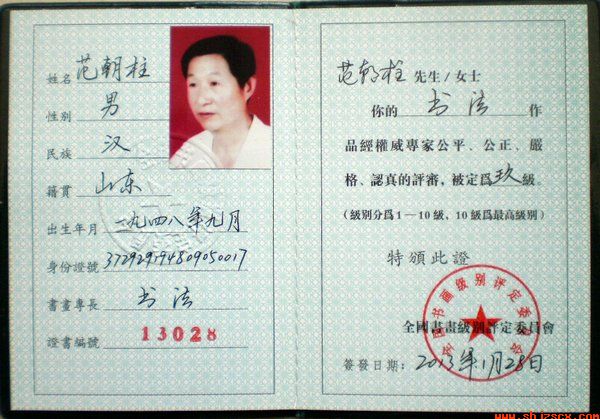 姓名 范朝柱
性别 男
民族 汉
籍貫 山东
出生年月 一九四八年九月
身份證號 372929194809050017
書畫專長 书法
證書編號 13028
范朝柱 先生/女士
你的 书法 作
品經權威專家公平、公正、嚴
格、認真的評審，被定爲玖級。
（級别分爲1—10級，10級爲最高級别）
特頒此證
全国书画级别评定委员会
全國書畫級别評定委員會
簽發日期：2013年1月28日
www.shjzscx.com